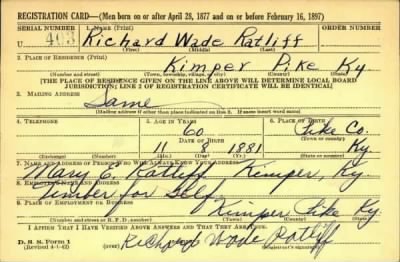 REGISTRATION CARD—(Men born on or after April 28, 1877 and on or before February 16, 1897)
SERIAL NUMBER 1. NAME (Print) ORDER NUMBER
U 403 Richard Wade Ratliff
(First) (Middle) (Last)
2. PLACE OF RESIDENCE (Print)
Kimper Pike Ky.
(Number and street) (Town, township, village, or city) (County) (State)
[THE PLACE OF RESIDENCE GIVEN ON THE LINE ABOVE WILL DETERMINE LOCAL BOARD
JURISDICTION; LINE 2 OF REGISTRATION CERTIFICATE WILL BE IDENTICAL]
3. MAILING ADDRESS
Same
[Mailing address if other than place indicated on line 2. If same insert word same]
4. TELEPHONE 5. AGE IN YEARS 6. PLACE OF BIRTH
60 Pike Co.
DATE OF BIRTH (Town or county)
11 8 1881 Ky.
(Exchange) (Number) (Mo.) (Day) (Yr.) (State or country)
7. NAME AND ADDRESS OF PERSON WHO WILL ALWAYS KNOW YOUR ADDRESS
Mary E. Ratliff Kimper, Ky.
8. EMPLOYER'S NAME AND ADDRESS
Timber for Self
9. PLACE OF EMPLOYMENT OR BUSINESS
Kimper Pike Ky.
(Number and street or R. F. D. number) (Town) (County) (State)
I AFFIRM THAT I HAVE VERIFIED ABOVE ANSWERS AND THAT THEY ARE TRUE.
D. S. S. Form 1
(Revised 4-1-42) (over) Richard Wade Ratliff
(Registrant's signature)